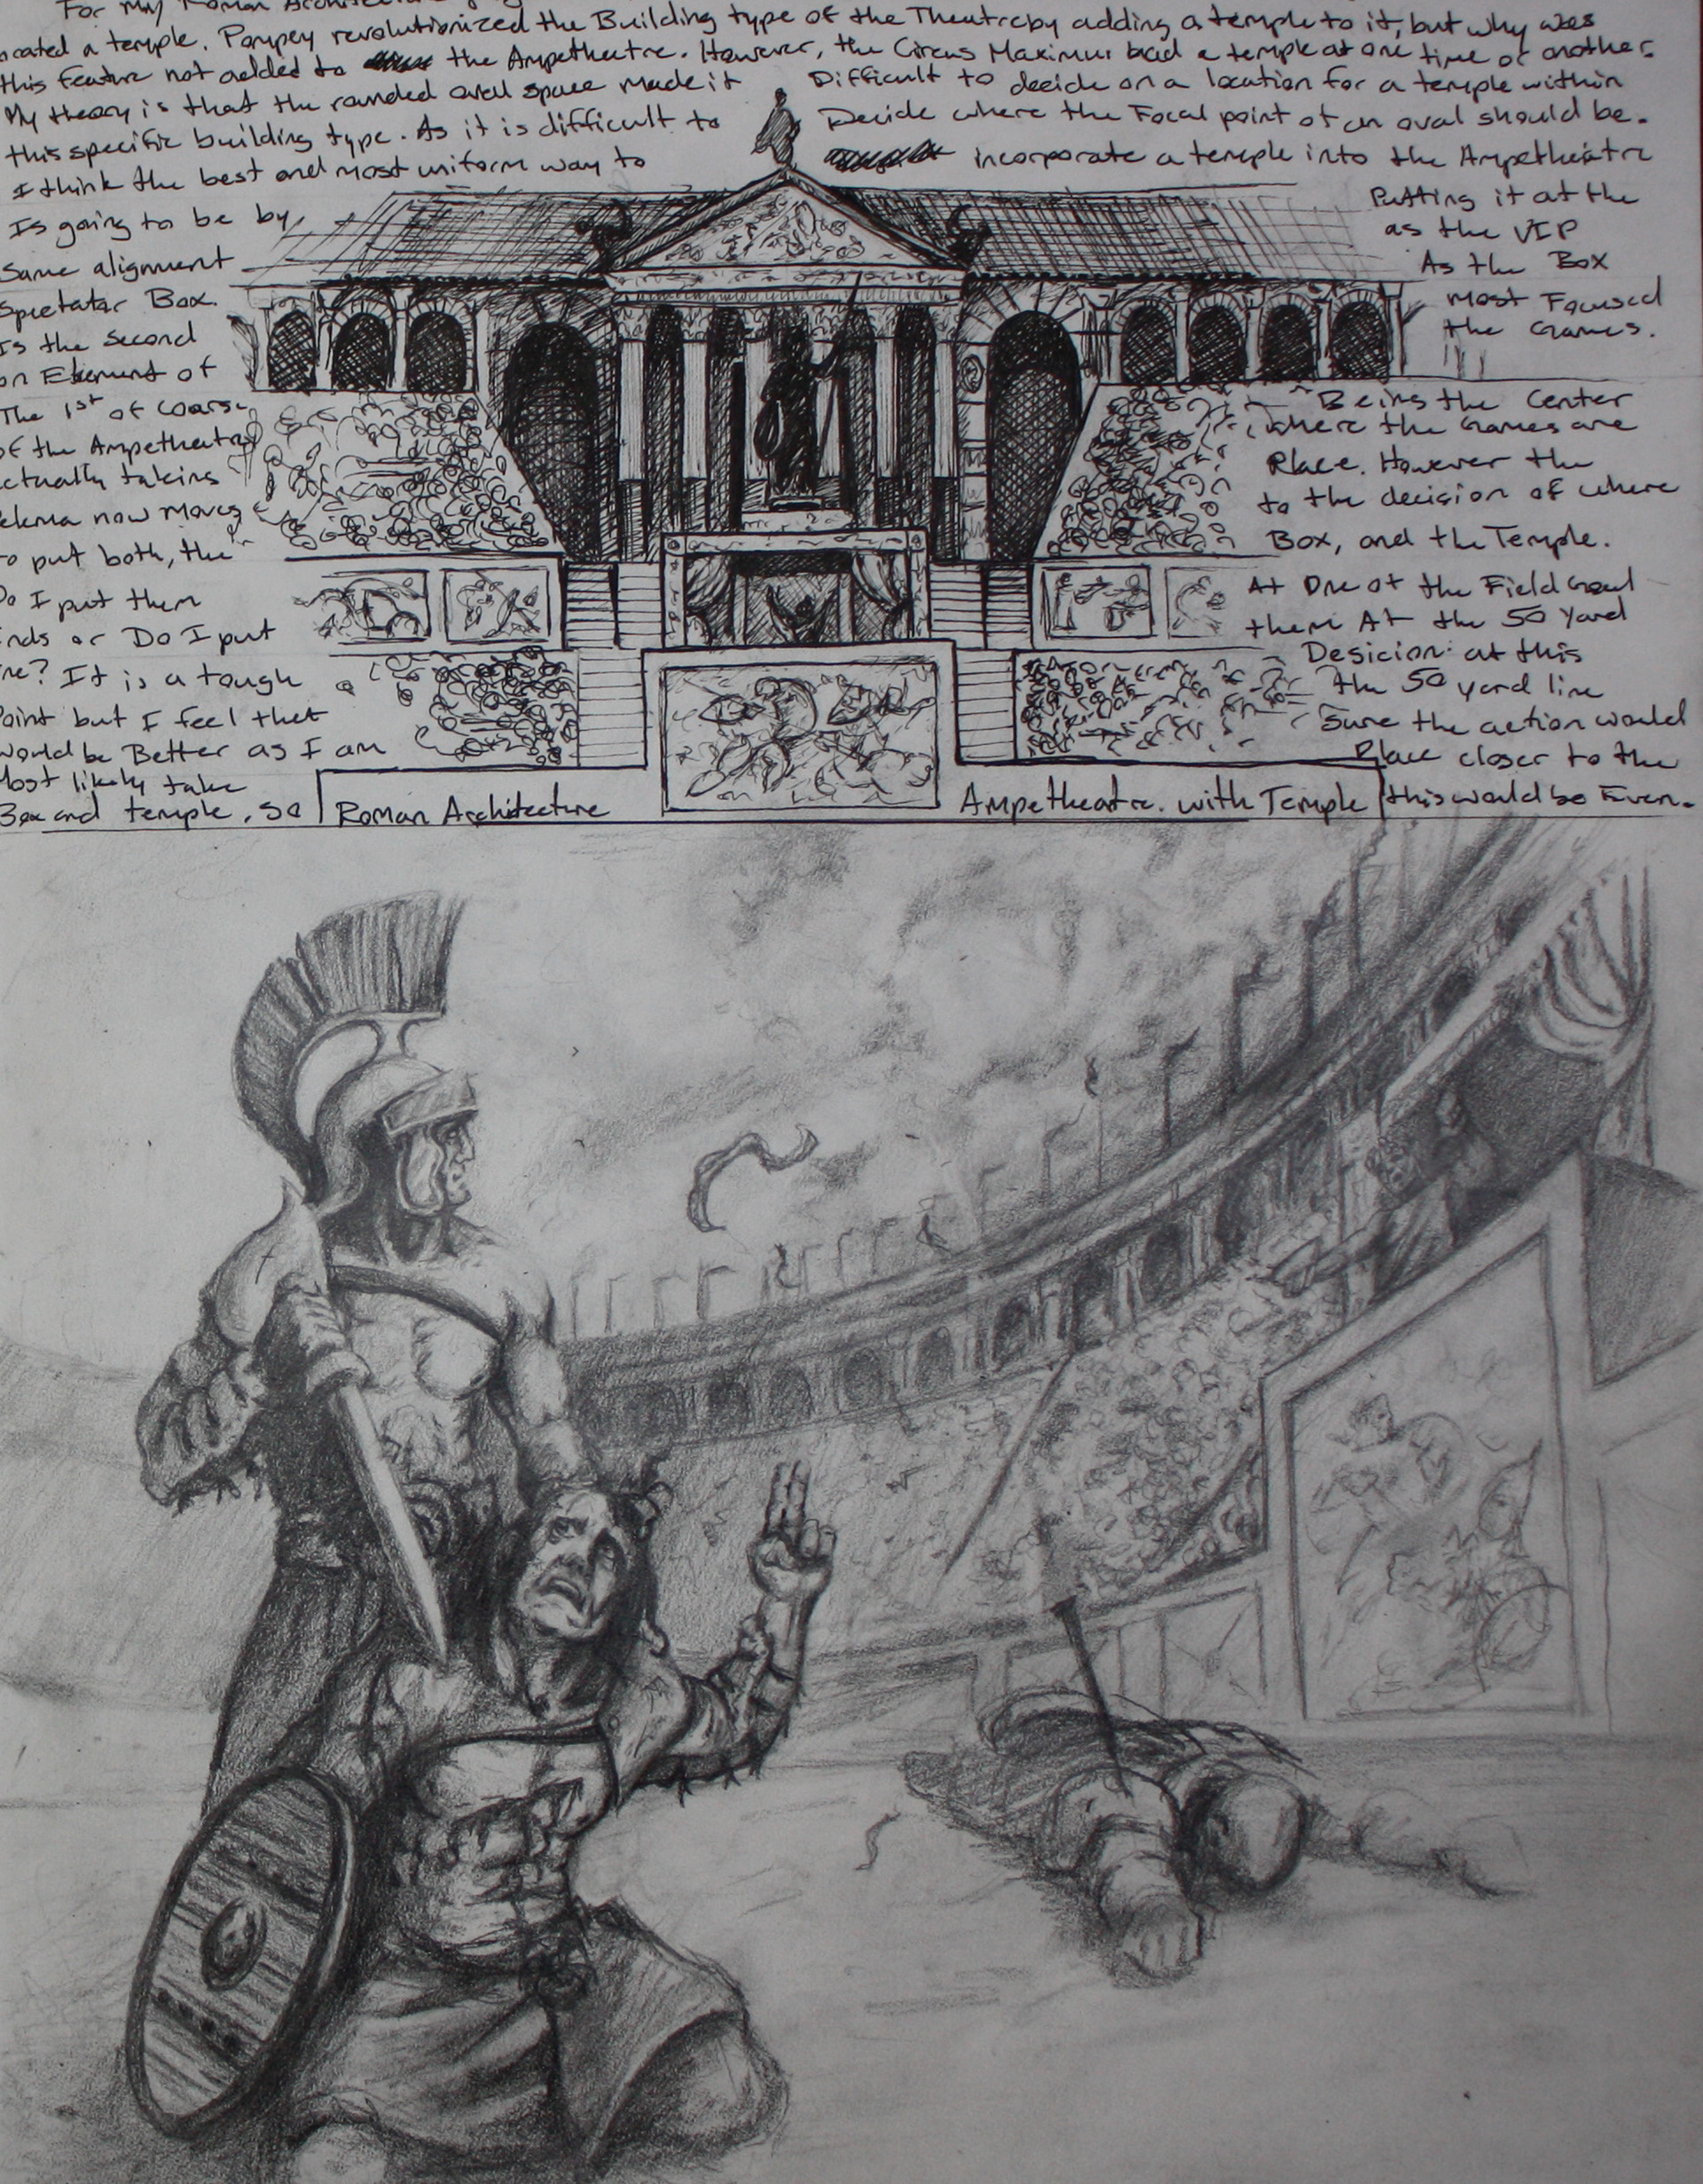 For My Roman Architecture
ocated a temple. Pompey revolutionized the Building type of the Theatre by adding a temple to it, but why was
this feature not added to the Ampetheatre. However, the Circus Maximus had a temple at one time or another.
My theory is that the rounded oval space made it Difficult to decide on a location for a temple within
this specific building type. As it is difficult to Decide where the Focal point of an oval should be.
I think the best and most uniform way to incorporate a temple into the Ampetheatre
Is going to be by Putting it at the
Same alignment as the VIP
Spectator Box. As the Box
Is the second most Focused
on Element of the Games.
The 1st of Coarse Being the Center
of the Ampetheatre where the Games are
ctually taking Place. However the
elema now moves to the decision of where
to put both, the Box, and the Temple.
Do I put them At One of the Field Goal
nds or Do I put them At the 50 Yard
ne? It is a tough Desicion at this
Point but I feel that the 50 yard line
would be Better as I am Sure the action would
Most likely take Place closer to the
Box and temple, so this would be Even.
Roman Architecture Ampetheatre. with Temple